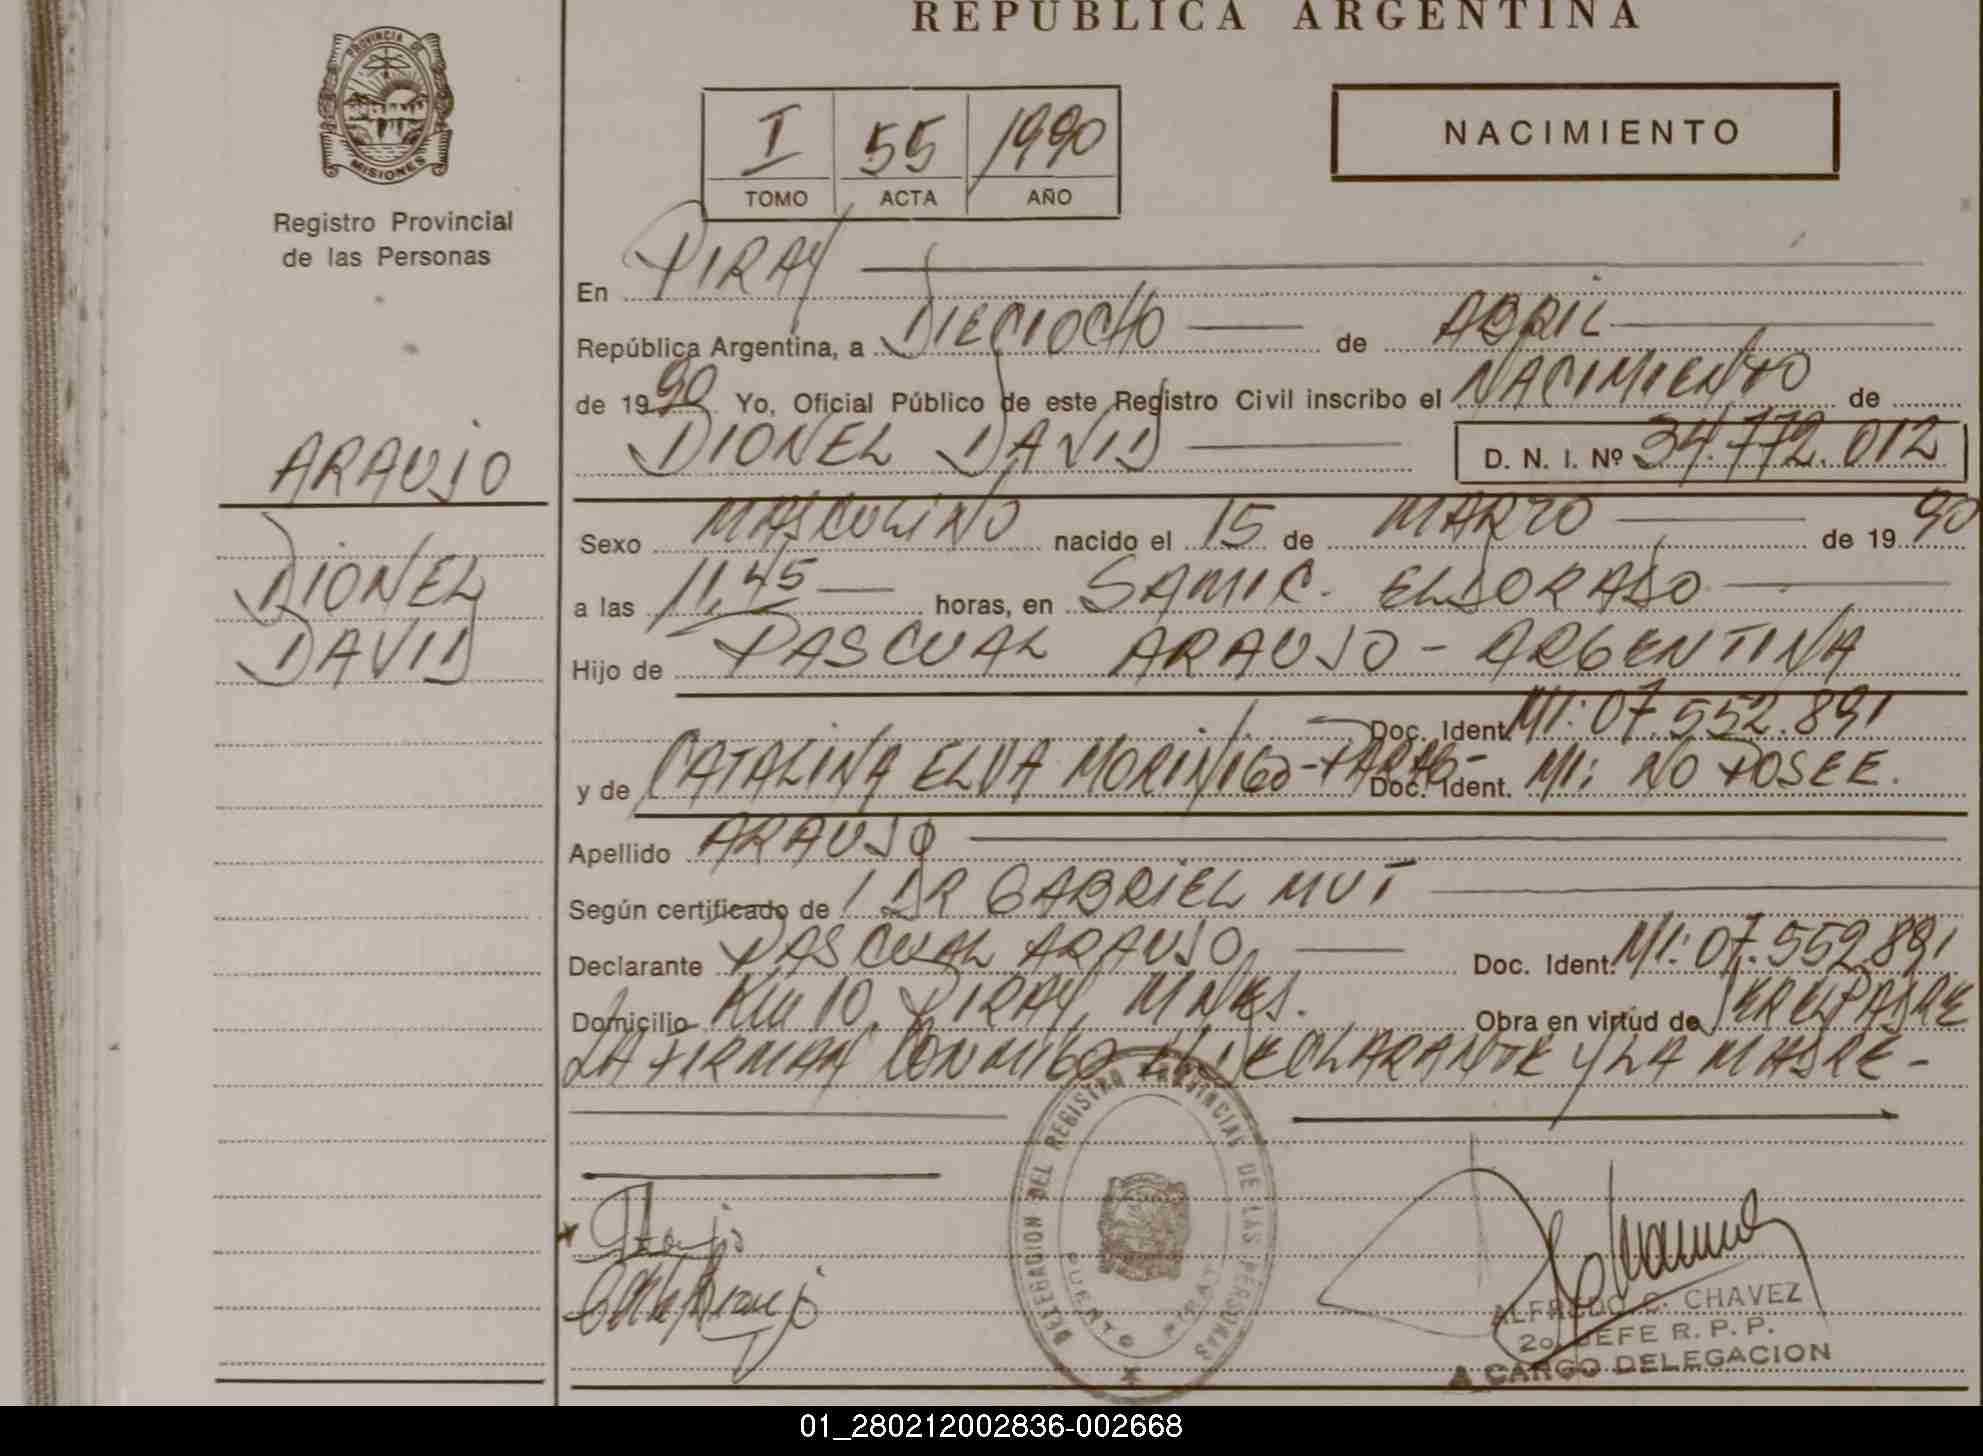 REPUBLICA ARGENTINA
PROVINCIA DE
MISIONES
Registro Provincial
de las Personas
I 55 1990
TOMO ACTA AÑO
NACIMIENTO
En PIRAY
República Argentina, a DIECIOCHO de ABRIL
de 1990 Yo, Oficial Público de este Registro Civil inscribo el NACIMIENTO de
DIONEL DAVID D. N. I. Nº 34.772.012
ARAUJO
DIONEL
DAVID
Sexo MASCULINO nacido el 15 de MARZO de 1990
a las 11,45 horas, en SAMIC. ELDORADO
Hijo de PASCUAL ARAUJO - ARGENTINA
Doc. Ident. MI: 07.552.891
y de CATALINA ELVA MORINIGO - PARAG- Doc. Ident. MI: NO POSEE.
Apellido ARAUJO
Según certificado de DR GABRIEL MUT
Declarante PASCUAL ARAUJO, Doc. Ident. MI: 07.552.891
Domicilio KM 10, PIRAY, MNES. Obra en virtud de SER EL PADRE
LA FIRMAN CONMIGO EL DECLARANTE Y LA MADRE -
DELEGACION DEL REGISTRO PROVINCIAL DE LAS PERSONAS
PUERTO PIRAY
ALFREDO C. CHAVEZ
2o JEFE R. P. P.
A CARGO DELEGACION
01_280212002836-002668